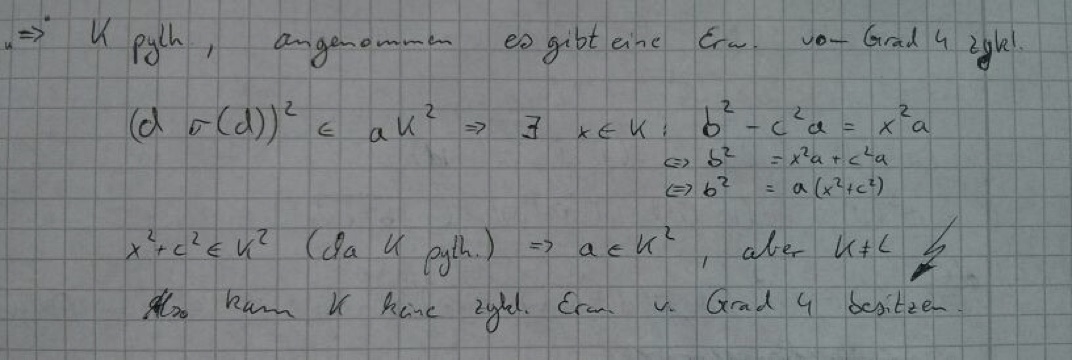 "⇒" K pyth., angenommen es gibt eine Erw. von Grad 4 zykl.
(d σ(d))² ∈ aK² ⇒ ∃ x ∈ K: b² - c²a = x²a
⇔ b² = x²a + c²a
⇔ b² = a(x²+c²)
x²+c² ∈ K² (da K pyth.) ⇒ a ∈ K², aber K≠L ↯
Also kann K keine zykl. Erw. v. Grad 4 besitzen.